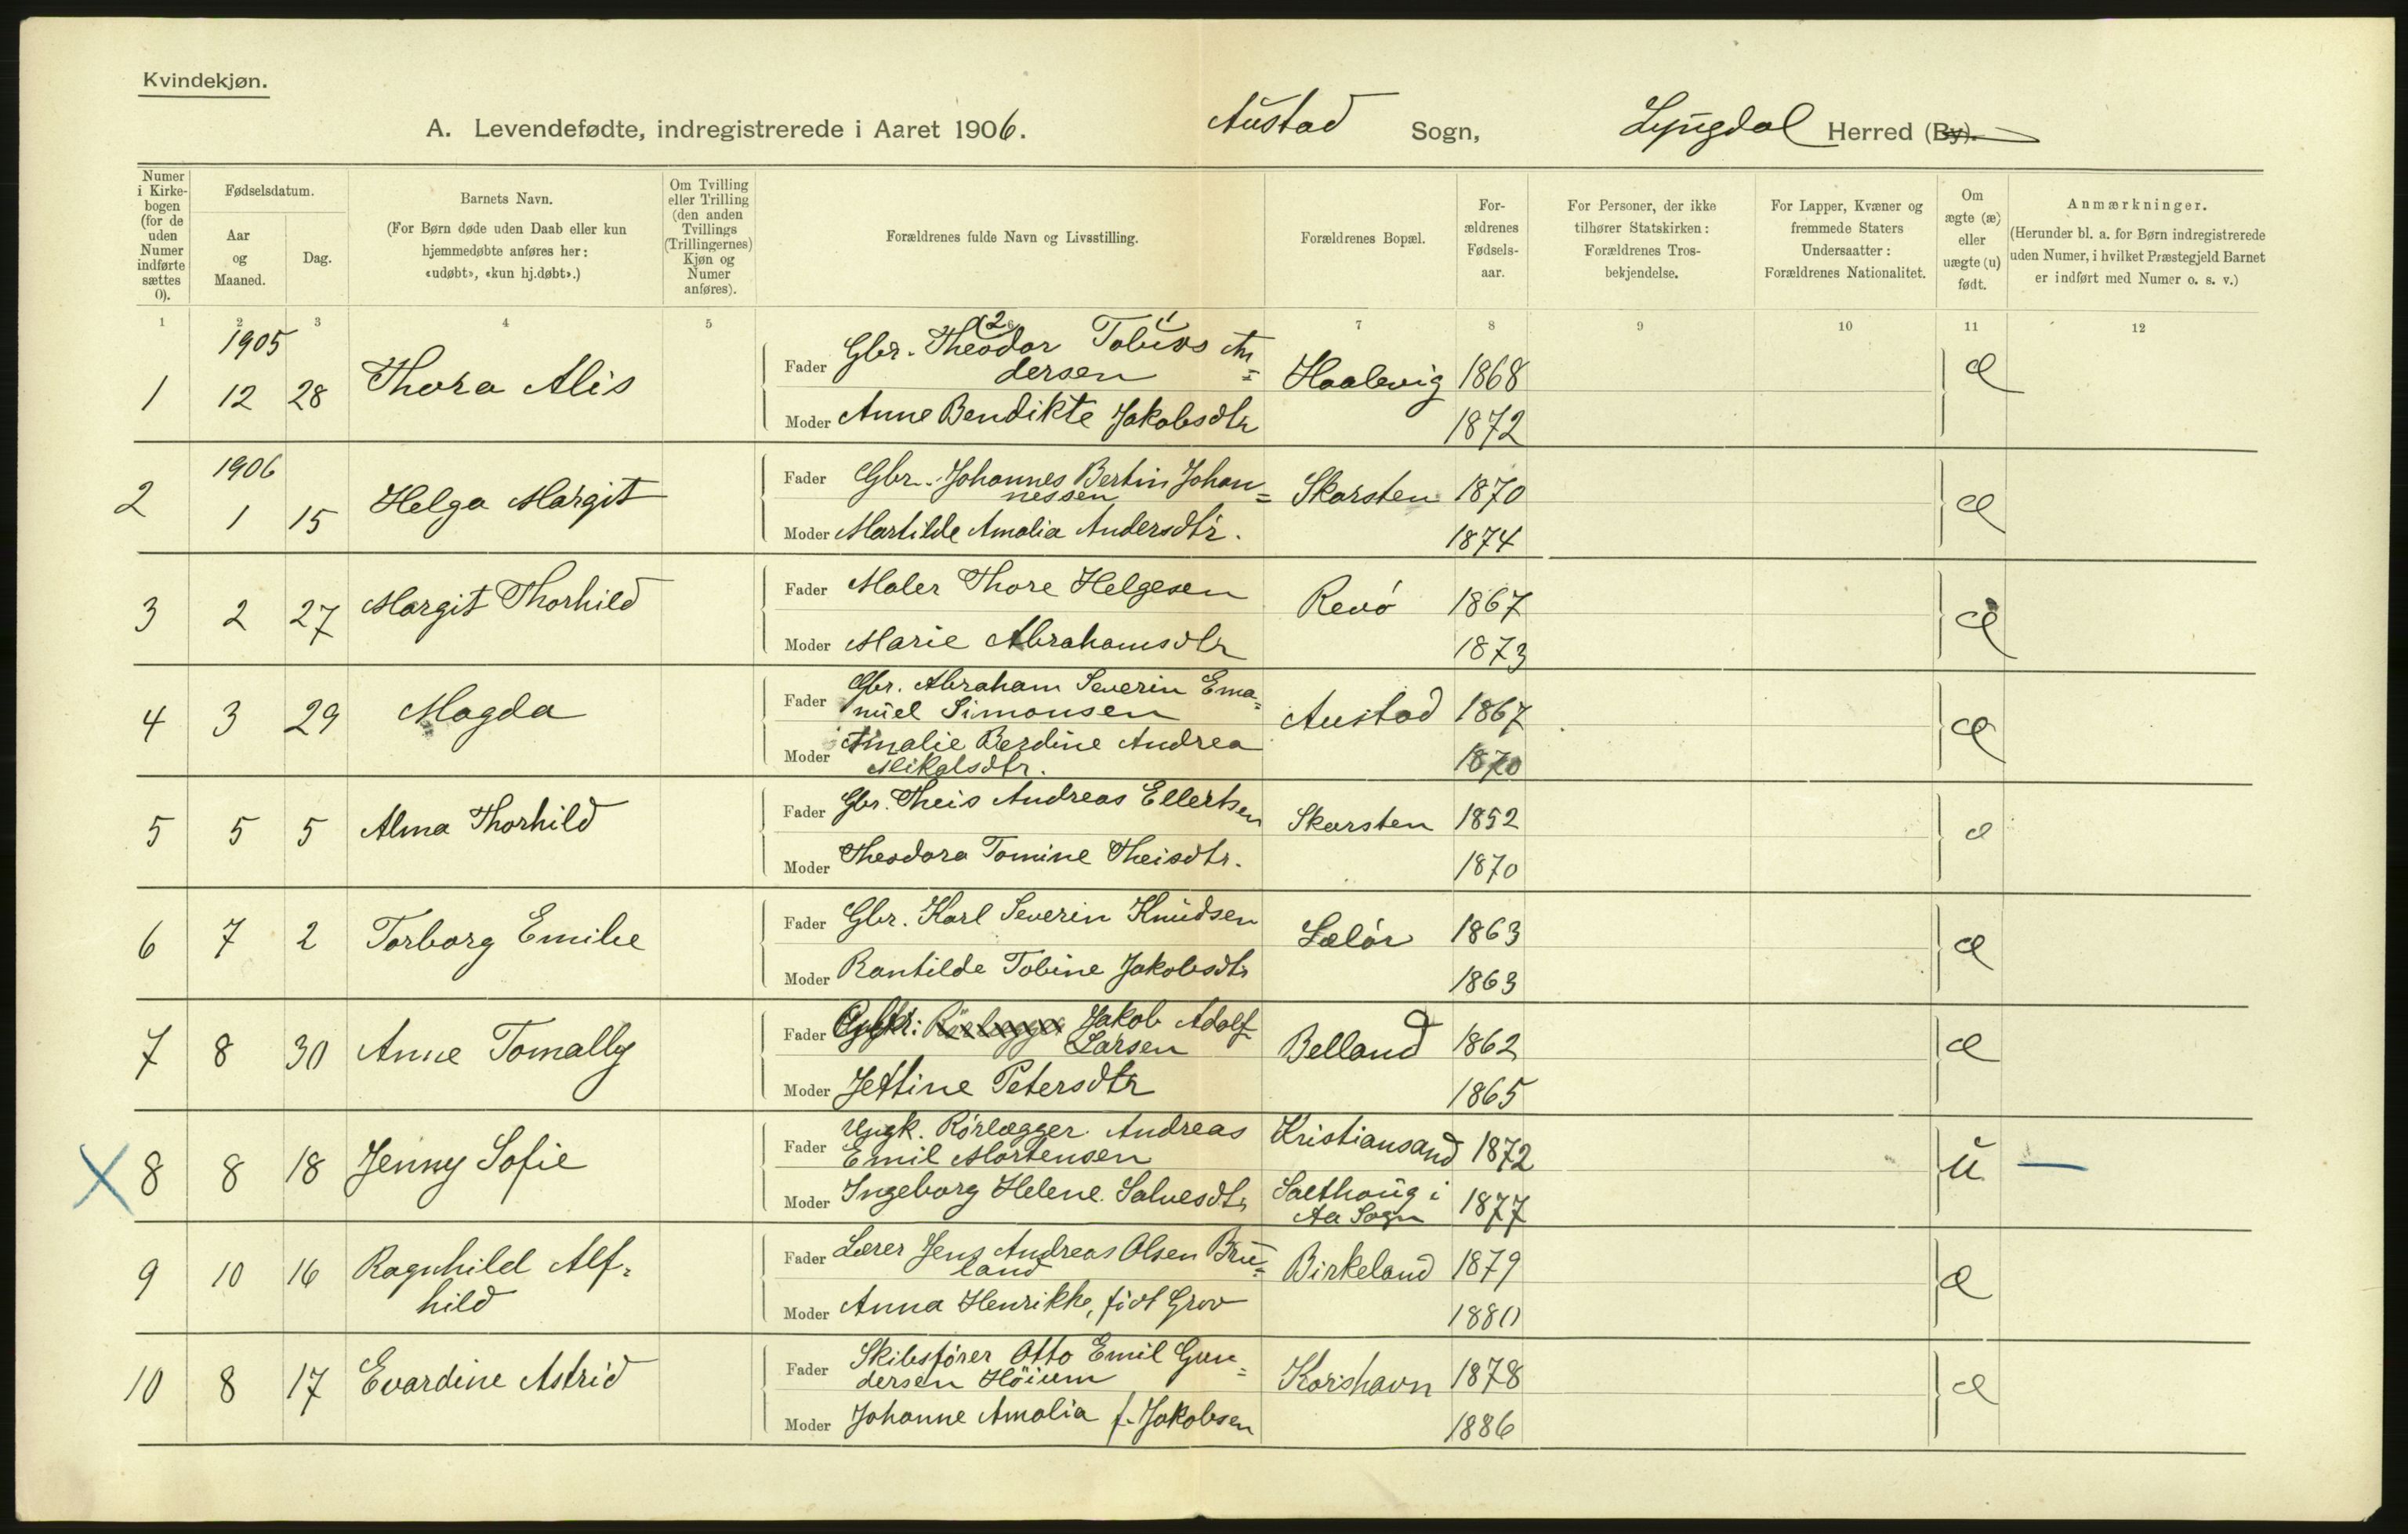 Kvindekjøn.
A. Levendefødte, indregistrerede i Aaret 1906. Austad Sogn, Lyngdal Herred (By).
Numer i Kirkebogen (for de uden Numer indførte sættes 0).
Fødselsdatum.
Aar og Maaned.
Dag.
Barnets Navn.
(For Børn døde uden Daab eller kun hjemmedøbte anføres her: «udøbt», «kun hj.døbt».)
Om Tvilling eller Trilling (den anden Tvillings (Trillingernes) Kjøn og Numer anføres).
Forældrenes fulde Navn og Livsstilling.
Forældrenes Bopæl.
Forældrenes Fødselsaar.
For Personer, der ikke tilhører Statskirken: Forældrenes Trosbekjendelse.
For Lapper, Kvæner og fremmede Staters Undersaatter: Forældrenes Nationalitet.
Om ægte (æ) eller uægte (u) født.
Anmærkninger.
(Herunder bl. a. for Børn indregistrerede uden Numer, i hvilket Præstegjeld Barnet er indført med Numer o. s. v.)
1 2 3 4 5 6 7 8 9 10 11 12
1905
1 12 28 Thora Alis Fader Gbr. Theodor Tobias An=
dersen Haalevig 1868 æ
Moder Anne Bendikte Jakobsdtr 1872
1906
2 1 15 Helga Margit Fader Gbr. Johannes Bertin Johan=
nessen Skarsten 1870 æ
Moder Martilde Amalia Andersdtr. 1874
3 2 27 Margit Thorhild Fader Maler Thore Helgesen Revø 1867 æ
Moder Marie Abrahamsdtr 1873
4 3 29 Magda Fader Gbr. Abraham Severin Ema=
nuel Simonsen Austad 1867 æ
Moder Amalie Berdine Andrea
Mikalsdtr. 1870
5 5 5 Alma Thorhild Fader Gbr. Theis Andreas Ellertsen Skarsten 1852 æ
Moder Theodora Tomine Theisdtr. 1870
6 7 2 Torborg Emilie Fader Gbr. Karl Severin Knudsen Lølør 1863 æ
Moder Rantilde Tobine Jakobsdtr 1863
7 8 30 Anne Tomally Fader Rørlægger Jakob Adolf
Larsen Belland 1862 æ
Moder Jettine Petersdtr 1865
8 8 18 Jenny Sofie Fader Ungk. Rørlægger Andreas
Emil Mortensen Kristiansand 1872 u —
Moder Ingeborg Helene Salvesdtr Salthaug i
Aa Sogn 1877
9 10 16 Ragnhild Alf=
hild Fader Lærer Jens Andreas Olsen Bru=
land Birkeland 1879 æ
Moder Anna Henrikke, født Grov 1880
10 8 17 Evardine Astrid Fader Skibsfører Otto Emil Gun=
dersen Høium Korshavn 1878 æ
Moder Johanne Amalia f. Jakobsen 1886